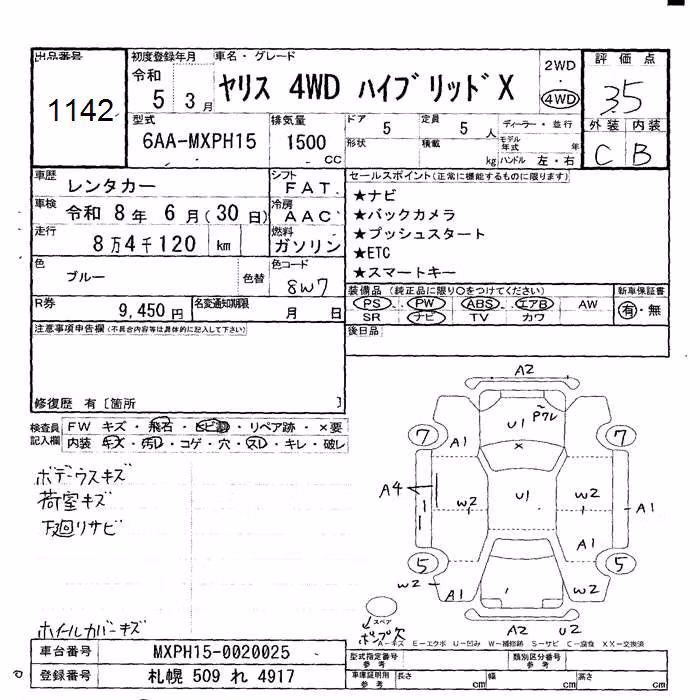 出品番号
1142
初度登録年月
令和
5 3月
車名・グレード
ヤリス 4WD ハイブリッドX
2WD
・
4WD
評価点
3.5
外装 内装
C B
型式
6AA-MXPH15
排気量
1500
CC
ドア
5
定員
5 人
形状
積載
kg
ディーラー・並行
モデル年式
年
ハンドル 左・右
車歴
レンタカー
シフト
FAT
車検
令和 8年 6月(30日)
冷房
AAC
走行
8万4千120 km
燃料
ガソリン
色
ブルー
色替
色コード
8W7
R券
9,450円
名変通知期限
月 日
セールスポイント(正常に機能するものに限ります)
★ナビ
★バックカメラ
★プッシュスタート
★ETC
★スマートキー
装備品 (純正品に限り○をつけてください)
新車保証書
PS PW ABS エアB AW
SR ナビ TV カワ
有・無
後日品
注意事項申告欄(不具合内容等は具体的に記入して下さい)
修復歴 有[箇所 ]
検査員記入欄
FW キズ・飛石・ヒビ割・リペア跡・×要
内装 キズ・汚レ・コゲ・穴・スレ・キレ・破レ
ボデーウスキズ
荷室キズ
下廻リサビ
ホイールカバーキズ
A2
Pワレ
U1
×
7
A1
7
A4
1
W2
U1
W2
A1
A1
5
5
W2
A1
W2
A2
U2
スペア
ポンプ欠
A－キズ E－エクボ U－凹み W－補修跡 S－サビ C－腐食 XX－交換済
車台番号
MXPH15-0020025
登録番号
札幌 509 れ 4917
型式指定番号
参考
類別区分番号
参考
車庫証明用
参考
長さ cm
幅 cm
高さ cm